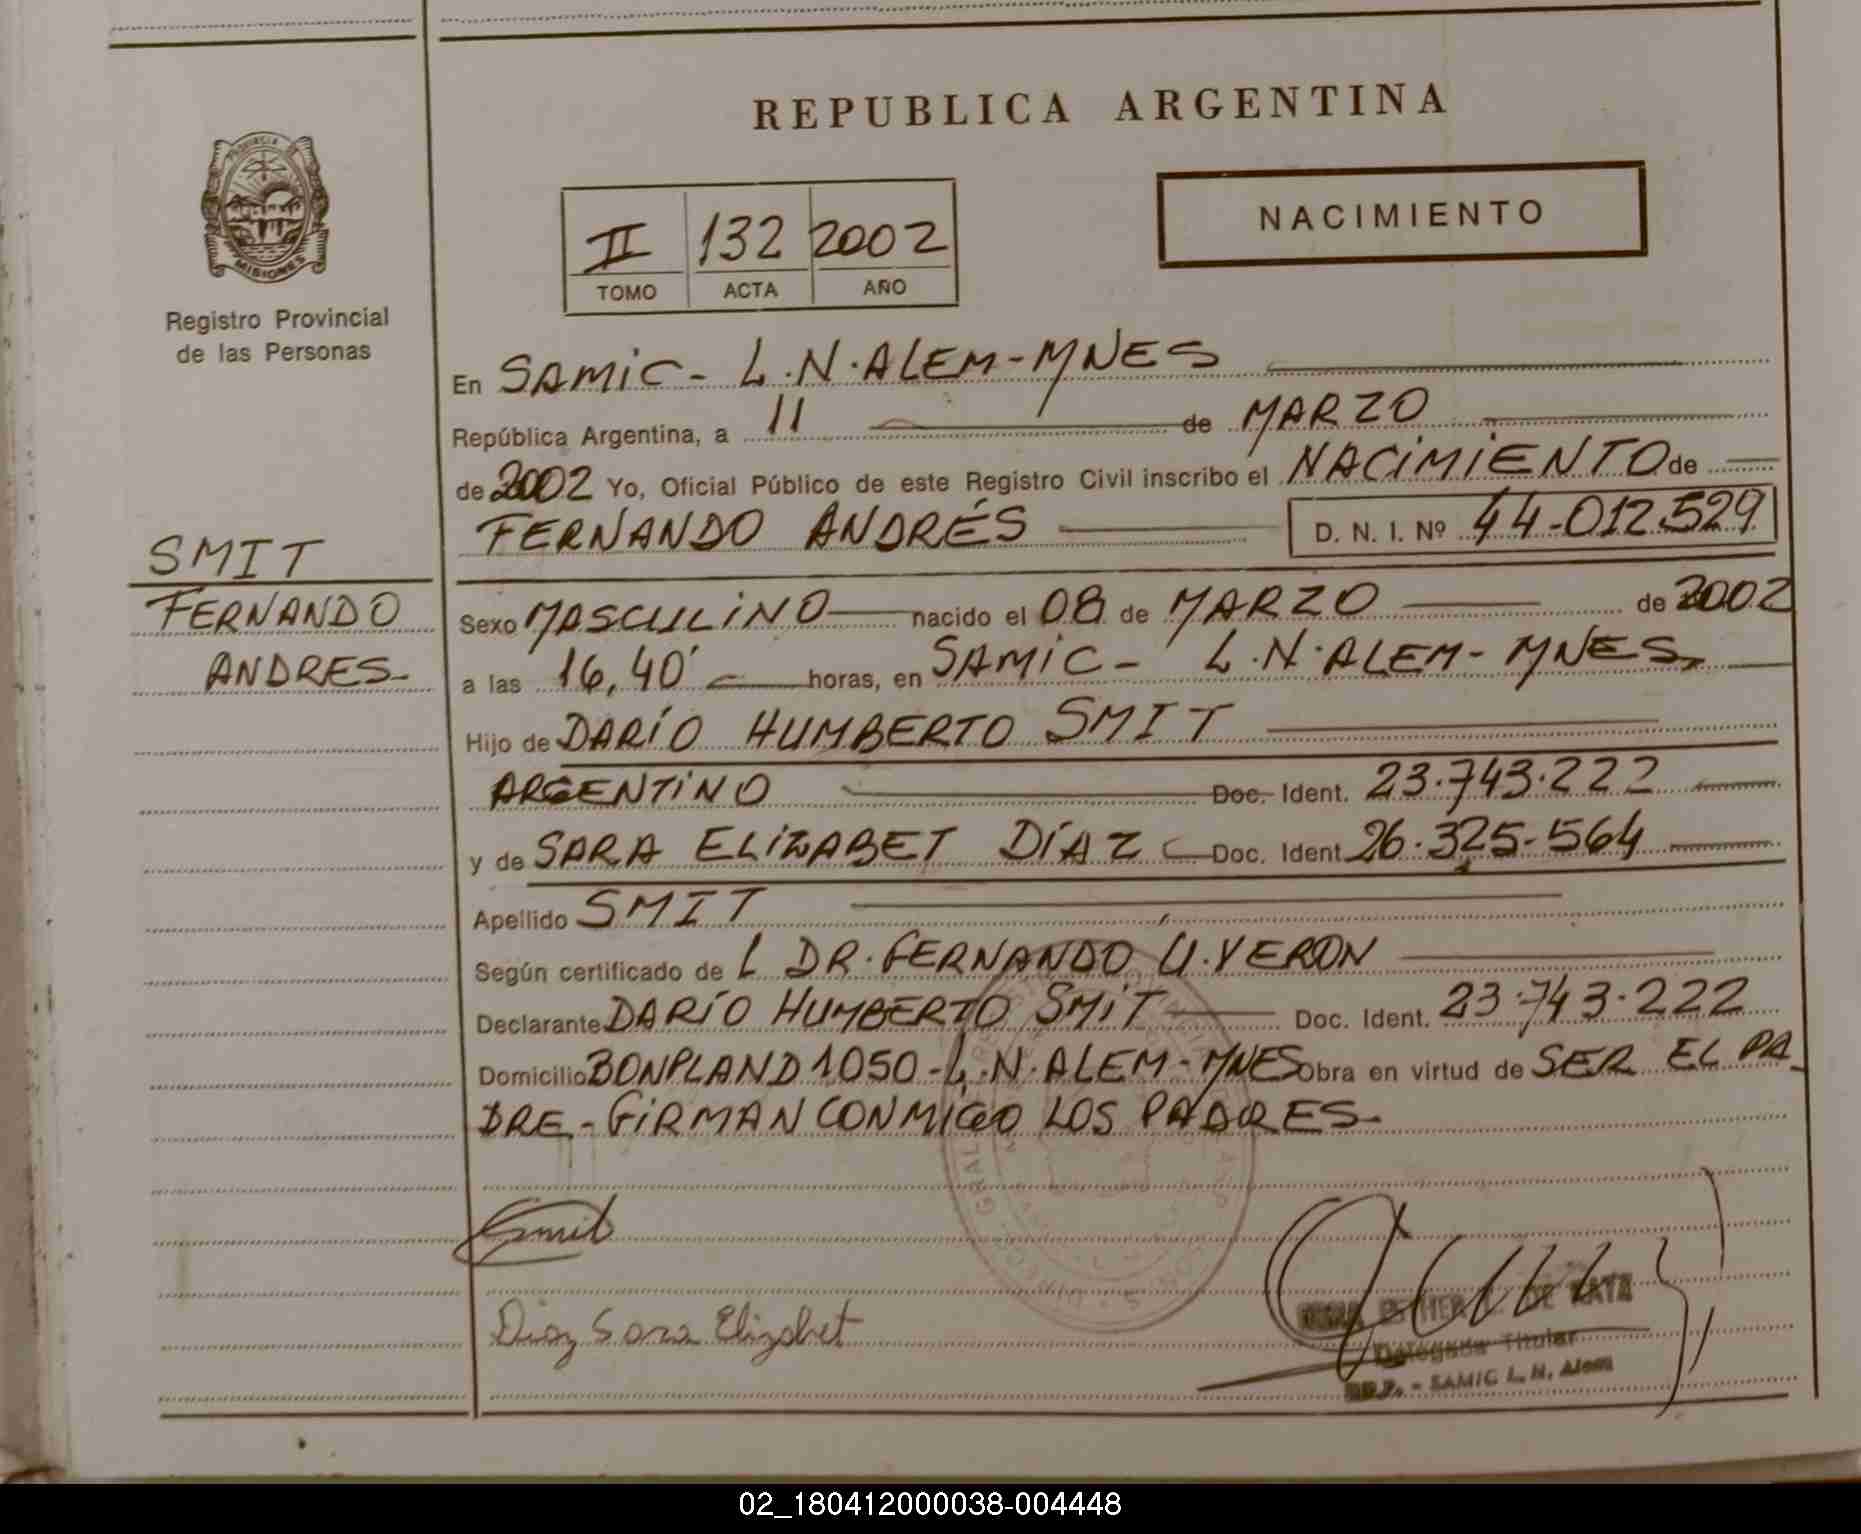 REPUBLICA ARGENTINA
PROVINCIA DE
MISIONES
Registro Provincial
de las Personas
II 132 2002
TOMO ACTA AÑO
NACIMIENTO
En SAMIC - L.N. ALEM - MNES
República Argentina, a 11 de MARZO
de 2002 Yo, Oficial Público de este Registro Civil inscribo el NACIMIENTO de
FERNANDO ANDRÉS D. N. I. Nº 44-012.529
SMIT
FERNANDO
ANDRES-
Sexo MASCULINO nacido el 08 de MARZO de 2002
a las 16,40' horas, en SAMIC - L.N. ALEM - MNES.
Hijo de DARÍO HUMBERTO SMIT
ARGENTINO Doc. Ident. 23.743.222
y de SARA ELIZABET DÍAZ Doc. Ident. 26.325.564
Apellido SMIT
Según certificado de L DR. FERNANDO U. YERON
Declarante DARÍO HUMBERTO SMIT Doc. Ident. 23.743.222
Domicilio BONPLAND 1050 - L.N. ALEM - MNES Obra en virtud de SER EL PA-
DRE - FIRMAN CONMIGO LOS PADRES.
Smit
Diaz Sara Elizabet
DE
Delegada Titular
SAMIC L. N. Alem
02_180412000038-004448